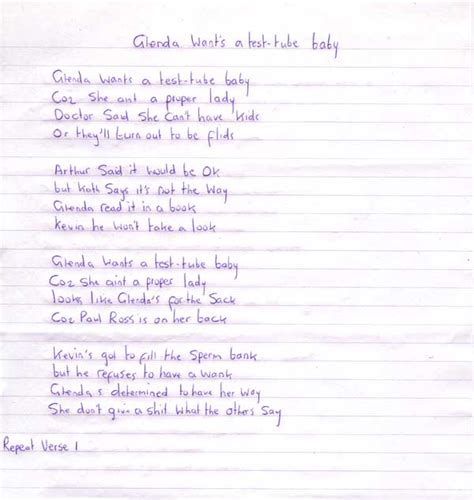 Glenda Want's a test-tube baby
Glenda Wants a test-tube baby
Coz She aint a proper lady
Doctor Said She Can't have Kids
Or they'll turn out to be flids
Arthur Said it would be OK
but Kath Says it's not the Way
Glenda read it in a book
Kevin he Won't take a look
Glenda Wants a test-tube baby
Coz She aint a proper lady
looks like Glenda's for the Sack
Coz Paul Ross is on her back
Kevin's got to fill the Sperm bank
but he refuses to have a wank
Glenda s determined to have her Way
She don't give a shit What the others Say
Repeat Verse 1